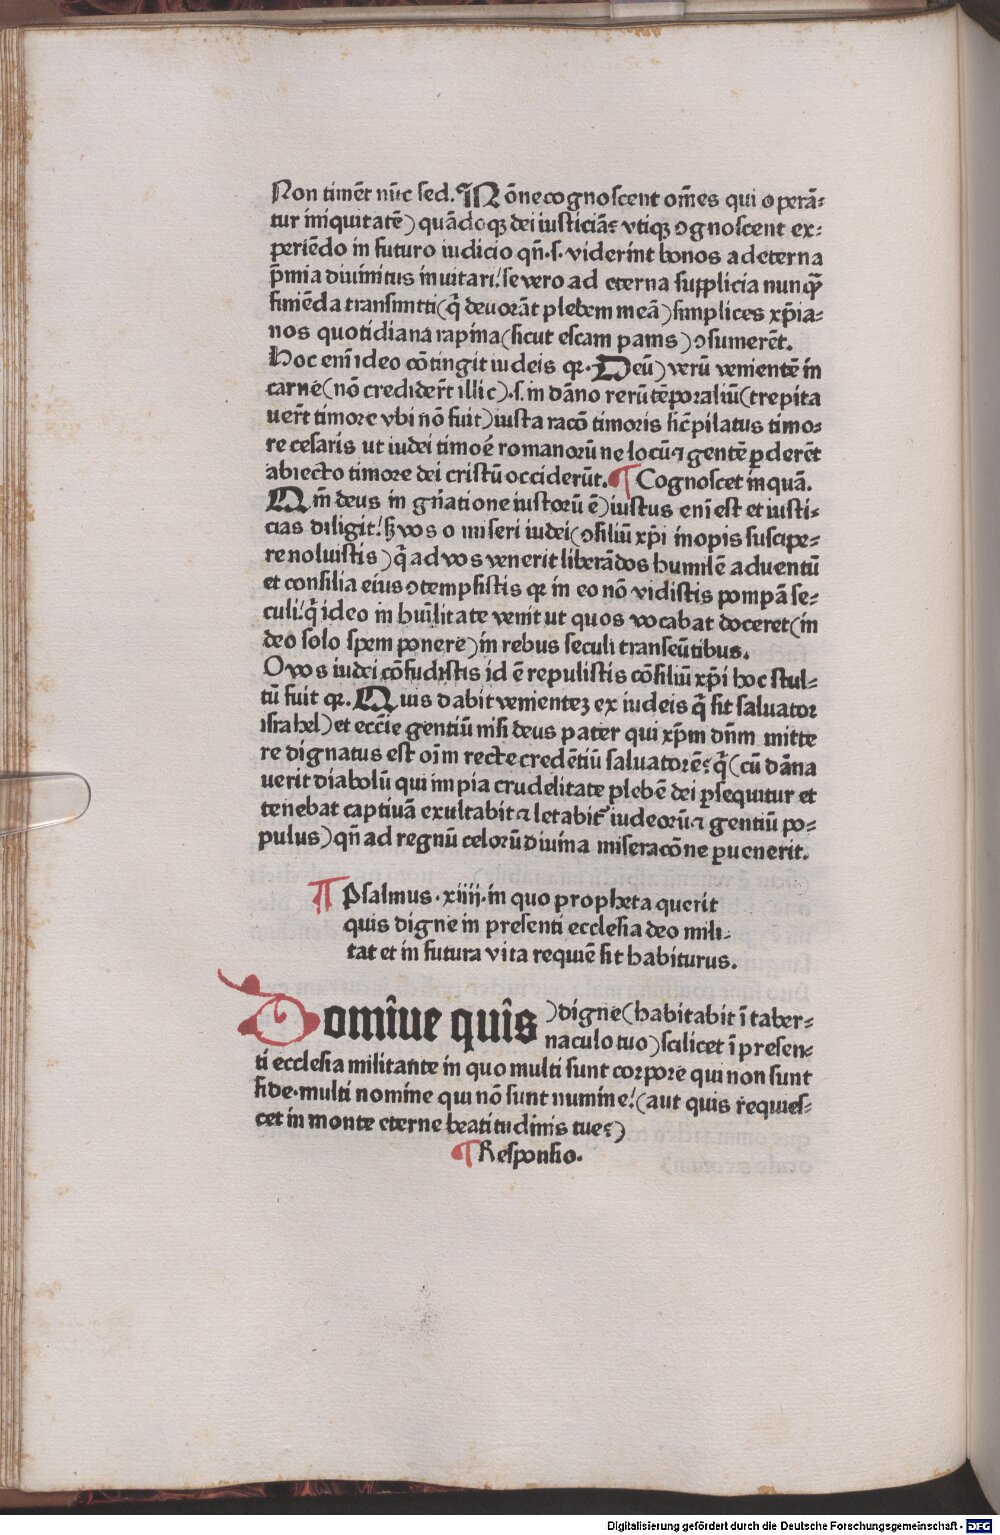 Non timēt nūc sed. ¶ Nōne cognoscent om̄es qui operā⸗
tur iniquitatē) quādoqꝫ dei iusticiā? vtiqꝫ ꝯgnoscent ex⸗
periēdo in futuro iudicio qn̄·s· viderint bonos ad eterna
p̄mia diuinitus inuitari! se vero ad eterna supplicia nunqͣꝫ
finiēda transimtti (qͥ deuorāt plebem meā) simplices xp̄ia⸗
nos quotidiana rapina (sicut escam panis) ꝯsumerēt.
Hoc enī ideo cōtingit iudeis qꝛ. Deū) verū venientē in
carnē (nō crediderūt illic)·s· in dāno rerū tēporaliū (trepita
uerūt timore vbi nō fuit) iusta racō timoris sic̄ pilatus timo⸗
re cesaris ut iudei timoē romanorū ne locū ⁊ gentē ꝑderēt
abiecto timore dei cristū occiderūt. ¶ Cognoscet inquā.
Qm̄ deus in gn̄atione iustorū ē) iustus enī est et iusti⸗
cias diligit! sꝫ vos o miseri iudei (ꝯsiliū xp̄i inopis suscipe⸗
re noluistis) qͥ ad vos venerit liberādos humilē aduentū
et consilia eius ꝯtempsistis qꝛ in eo nō vidistis pompā se⸗
culi! qͥ ideo in hūilitate venit ut quos vocabat doceret (in
deo solo spem ponere) in rebus seculi transeūtibus.
O vos iudei cōfudistis id ē repulistis cōsiliū xp̄i hoc stul⸗
tū fuit qꝛ. Quis dabit venientez ex iudeis qͥ sit saluator
israhel) et ecc̄ie gentiū nisi deus pater qui xp̄m dn̄m mitte
re dignatus est oīm recte credētiū saluatorē? qͥ (cū dāna
uerit diabolū qui impia crudelitate plebē dei ꝑsequitur et
tenebat captiuā exultabit ⁊ letabit᷑ iudeorū ⁊ gentiū po⸗
pulus) qn̄ ad regnū celorū diuina miseracōne ꝑuenerit.
¶ Psalmus·xiiii·in quo propheta querit
quis digne in presenti ecclesia deo mili⸗
tat et in futura vita requiē sit habiturus.
Domīne quis )digne (habitabit ī taber⸗
naculo tuo) scilicet ī presen⸗
ti ecclesia militante in quo multi sunt corpore qui non sunt
fide·multi nomine qui nō sunt numine! (aut quis requies⸗
cet in monte eterne beatitudinis tue?)
¶ Responsio.
Digitalisierung gefördert durch die Deutsche Forschungsgemeinschaft - DFG